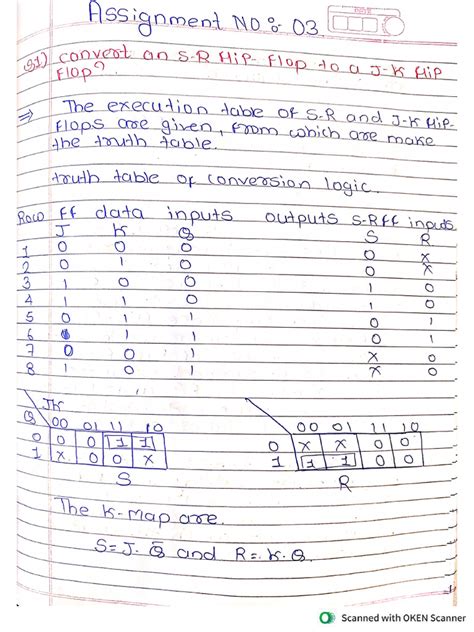 Assignment NO : 03
DATE
Q1) convert an S-R flip-flop to a J-K flip
flop?
⇒ The execution table of S-R and J-K flip-
flops are given, from which are make
the truth table.
truth table of conversion logic.
Row ff data inputs outputs S-R ff inputs
J K Q S R
1 0 0 0 0 X
2 0 1 0 0 X
3 1 0 0 1 0
4 1 1 0 1 0
5 0 1 1 0 1
6 1 1 0 1
7 0 0 1 X 0
8 1 0 1 X 0
JK
Q 00 01 11 10
0 0 0 1 1
1 X 0 0 X
S
00 01 11 10
0 X X 0 0
1 1 1 0 0
R
The K-map are.
S = J. Q̅ and R = K.Q.
Scanned with OKEN Scanner